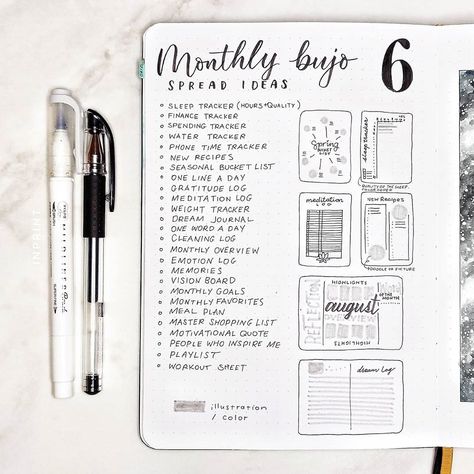 Monthly bujo
SPREAD IDEAS
6
SLEEP TRACKER (HOURS+QUALITY)
FINANCE TRACKER
SPENDING TRACKER
WATER TRACKER
PHONE TIME TRACKER
NEW RECIPES
SEASONAL BUCKET LIST
ONE LINE A DAY
GRATITUDE LOG
MEDITATION LOG
WEIGHT TRACKER
DREAM JOURNAL
ONE WORD A DAY
CLEANING LOG
MONTHLY OVERVIEW
EMOTION LOG
MEMORIES
VISION BOARD
MONTHLY GOALS
MONTHLY FAVORITES
MEAL PLAN
MASTER SHOPPING LIST
MOTIVATIONAL QUOTE
PEOPLE WHO INSPIRE ME
PLAYLIST
WORKOUT SHEET
illustration
/ color
Spring
BUCKET
LIST
sleep tracker
QUALITY OF THE SLEEP,
meditation
LOG
NEW RECIPES
DOODLE OR PICTURE
HIGHLIGHTS
REFLECTION
OF THE
MONTH
august
OVERVIEW
HIGHLIGHTS
dream log
INPRINT